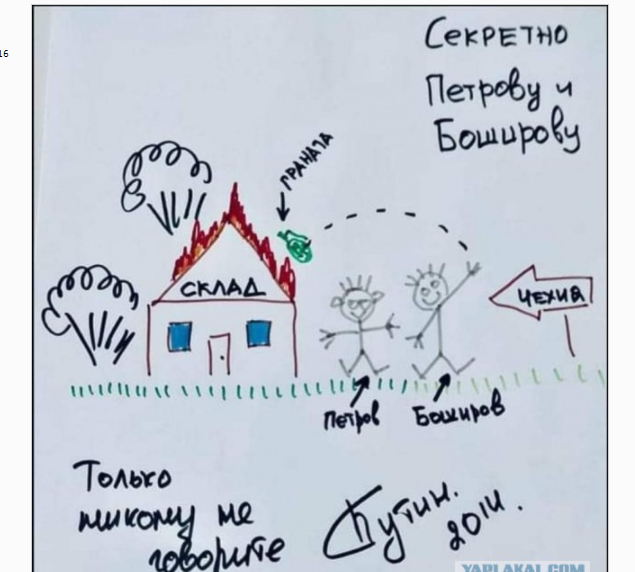 16
СЕКРЕТНО
Петрову и
Боширову
ГРАНАТА
СКЛАД
ЧЕХИЯ
Петров
Боширов
Только
никому не
говорите
Путин.
2014.
YAPLAKAL.COM